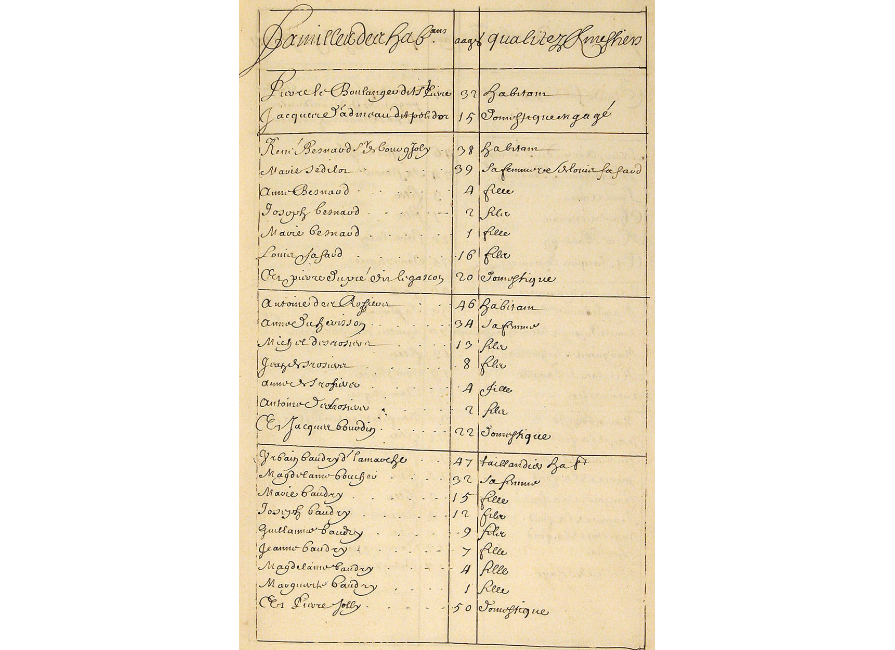 Familles des habans aages qualitez & mestiers
Pierre le Boulanger dit St Pierre 32 habitant
Jacques Radineau dit polidor 15 Domestique engagé
René Besnard Sr de bourgjoly 38 habitant
Marie Sedilot 39 sa femme ve de louis fafard
Anne Besnard 4 fille
Joseph besnard 2 filz
Marie besnard 1 fille
Louis fafard 16 filz
Et pierre dupré dit le gascon 20 Domestique
Antoine des Rosiers 46 habitant
Anne du hérisson 34 sa femme
Michel desrosiers 13 filz
Jean desrosiers 8 filz
anne desrosiers 4 fille
Antoine desrosiers 2 filz
Et Jacques bourdin 22 Domestique
Urbain baudry de lamarche 47 taillandier habt
Magdelaine boucher 32 sa femme
Marie baudry 15 fille
Joseph baudry 12 filz
Guillaume baudry 9 filz
Jeanne baudry 7 fille
Magdelaine baudry 4 fille
Marguerite baudry 1 fille
Et Pierre Jolly 50 Domestique